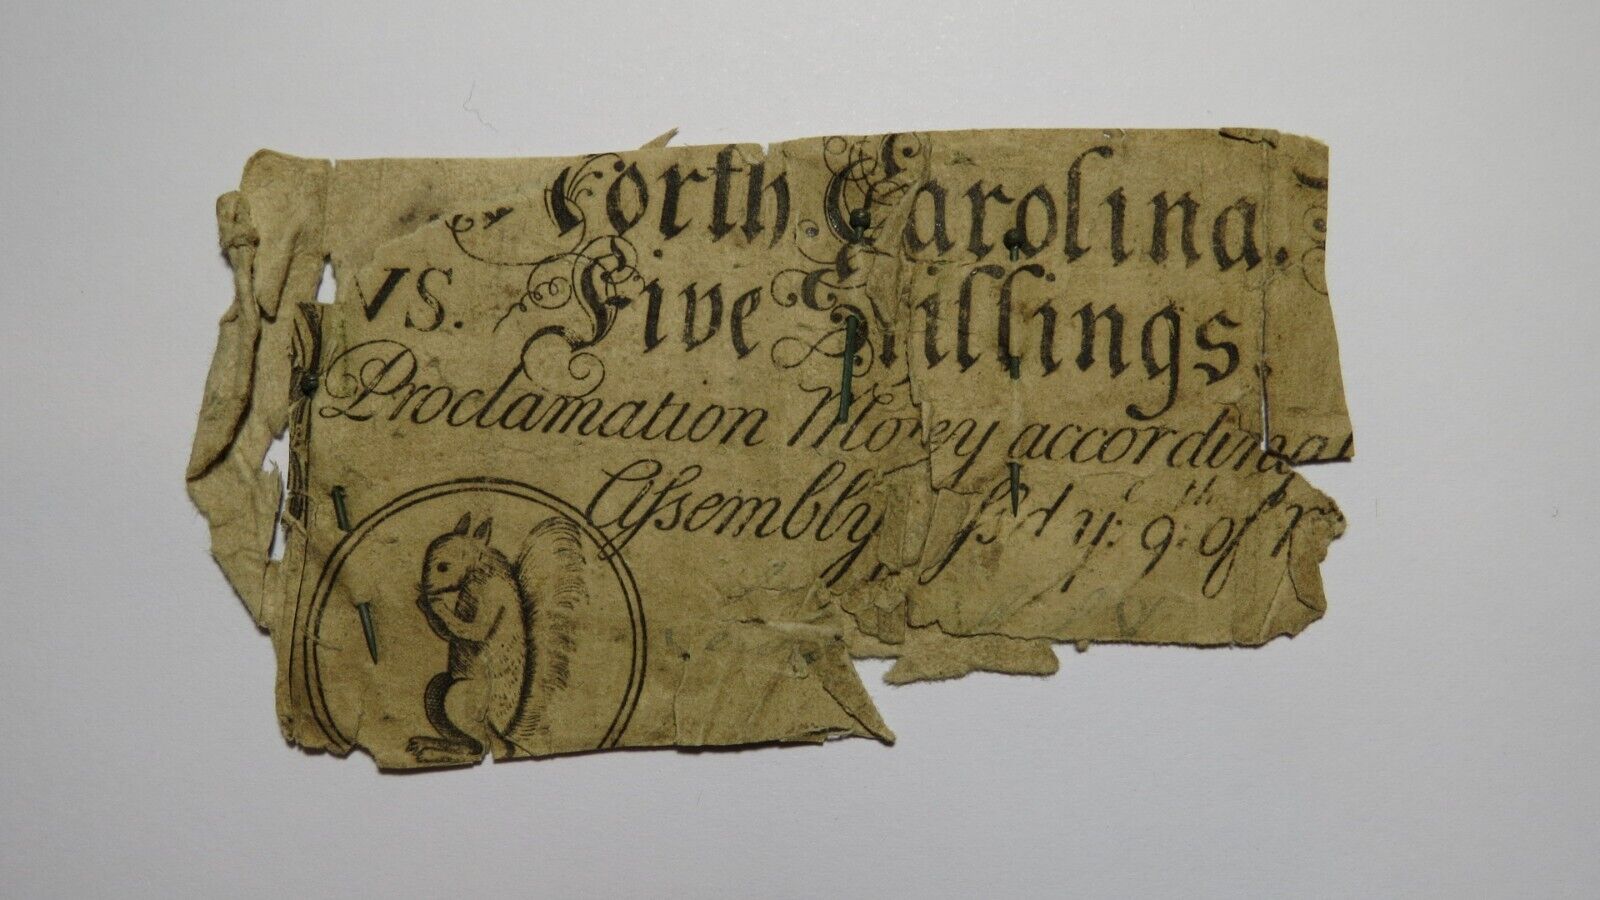 orth Carolina.
VS. Five Shillings.
Proclamation Money according
Assembly y: 9: of